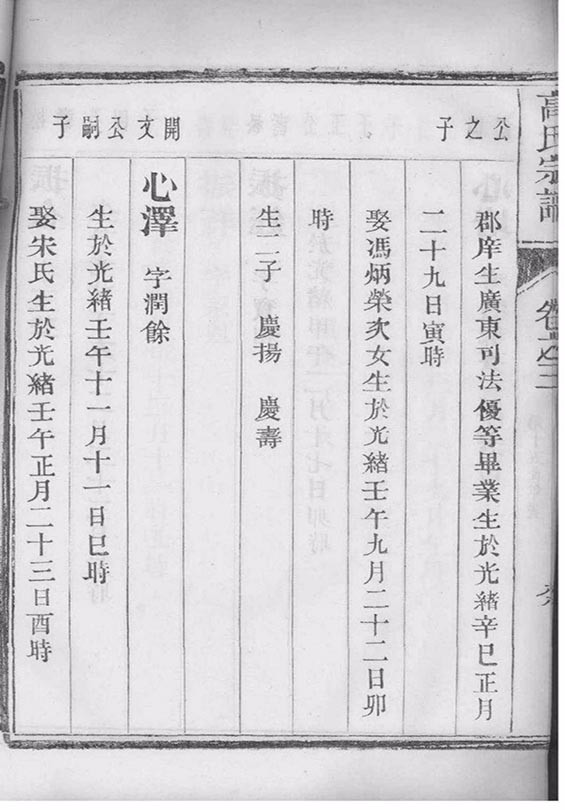 高氏宗譜
卷之三
公之子
郡庠生廣東司法優等畢業生於光緒辛巳正月
二十九日寅時
娶馮炳榮次女生於光緒壬午九月二十二日卯
時
生二子 慶揚 慶壽
開文公嗣子
心澤 字潤餘
生於光緒壬午十一月十一日巳時
娶宋氏生於光緒壬午正月二十三日酉時